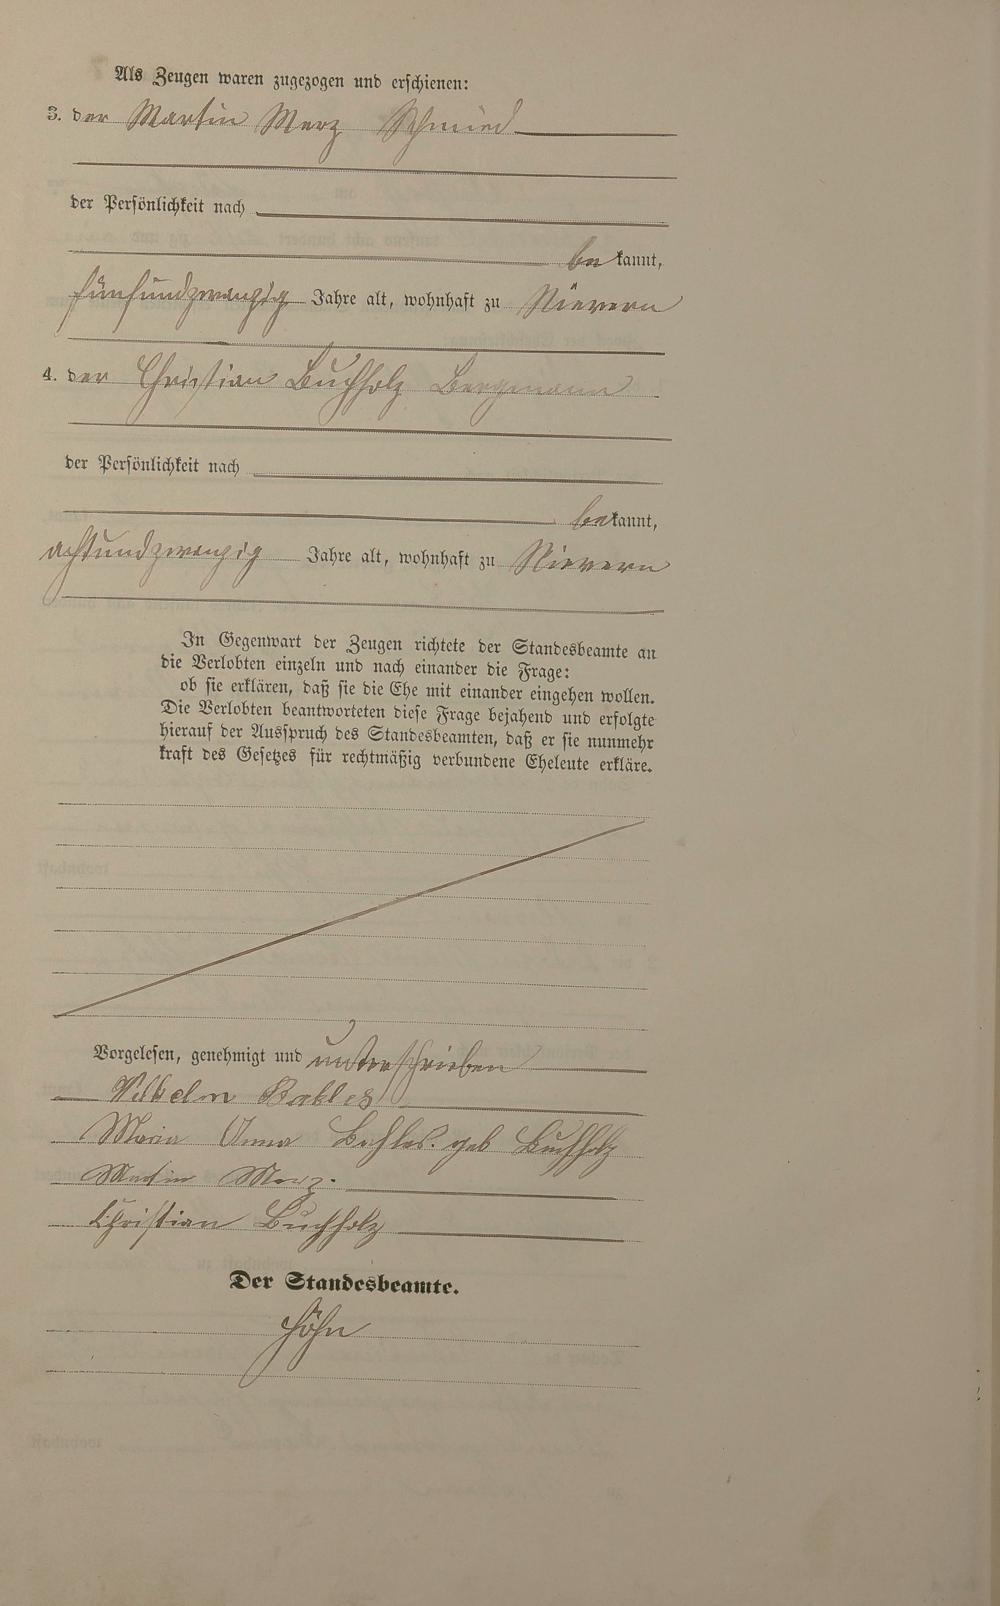 Als Zeugen waren zugezogen und erschienen:
3. der Martin Merz Schmied
der Persönlichkeit nach
bekannt,
fünfundzwanzig Jahre alt, wohnhaft zu Nievern
4. der Christian Buchholz Bergmann
der Persönlichkeit nach
bekannt,
achtundzwanzig Jahre alt, wohnhaft zu Nievern
In Gegenwart der Zeugen richtete der Standesbeamte an
die Verlobten einzeln und nach einander die Frage:
ob sie erklären, daß sie die Ehe mit einander eingehen wollen.
Die Verlobten beantworteten diese Frage bejahend und erfolgte
hierauf der Ausspruch des Standesbeamten, daß er sie nunmehr
kraft des Gesetzes für rechtmäßig verbundene Eheleute erkläre.
Vorgelesen, genehmigt und unterschrieben
Wilhelm
Maria Anna geb Buchholz
Martin Merz.
Christian Buchholz
Der Standesbeamte.
Höhn